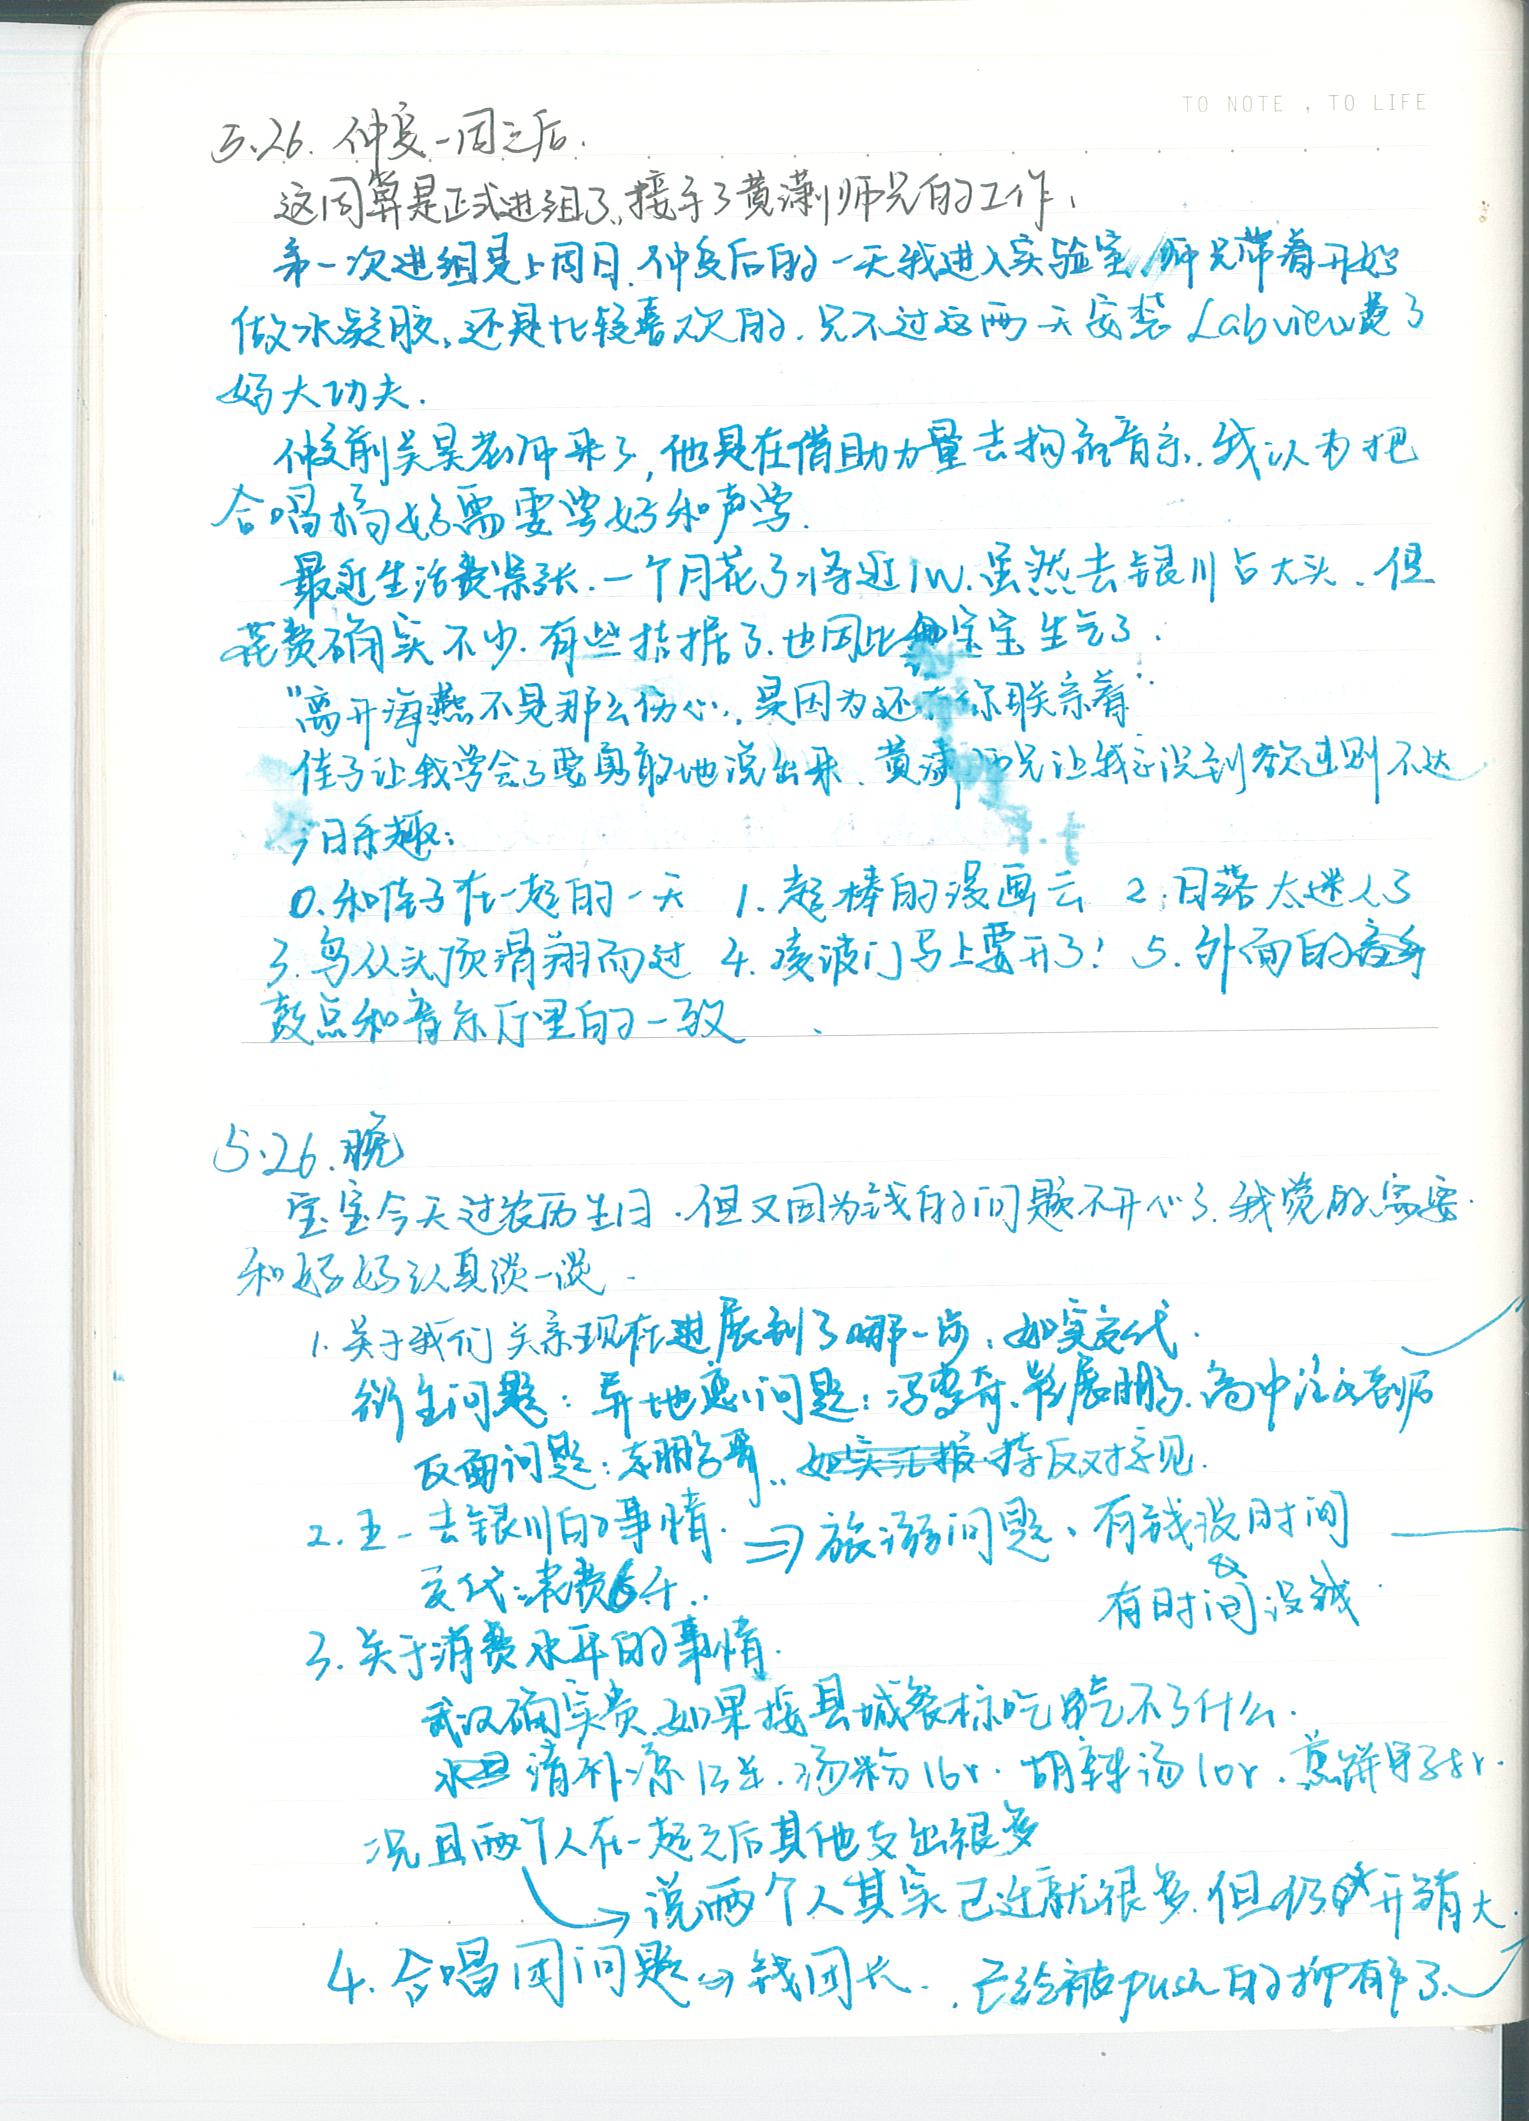 TO NOTE , TO LIFE
5.26. 仲夏一周之后.
这周算是正式进组了,接手了黄潇师兄的工作.
第一次进组是上周日.仲夏后的一天我进入实验室,师兄带着开始
做水凝胶,还是比较喜欢的.只不过这两天安装Labview费了
好大功夫.
仲夏前吴昊老师来了,他是在借助力量去构音乐.我认为把
合唱搞好需要学好和声学.
最近生活费紧张.一个月花了将近1w.虽然去银川占大头.但
花费确实不少.有些拮据了.也因此宝宝生气了.
"离开海燕不是那么伤心,是因为还有你联系着"
佳子让我学会了要勇敢地说出来.黄潇师兄让我意识到欲速则不达
今日乐趣:
0.和佳子在一起的一天 1.超棒的漫画云 2.日落太迷人了
3.鸟从头顶滑翔而过 4.凌波门马上要开了! 5.外面的音乐
鼓点和音乐厅里的一致.
5.26.晚
宝宝今天过农历生日.但又因为钱的问题不开心了.我觉的需要
和好好认真谈一谈.
1.关于我们关系现在进展到了哪一步,如实交代.
衍生问题:异地恋问题:冯雪奇、彭展鹏、高中老师
反面问题:鹏哥..如实汇报持反对意见.
2.五一去银川的事情. ⇒旅游问题、有钱没时间
交代:花费6千.. & 有时间没钱.
3.关于消费水平的事情.
武汉确实贵.如果按县城餐标吃吃不了什么.
水果 清补凉13羊.汤粉16r.胡辣汤10r.煎饼果子8r.
况且两个人在一起之后其他支出很多
→说两个人其实已近就很多.但仍开销大.
4.合唱团问题⇒钱团长. .已经被push的抑郁了.